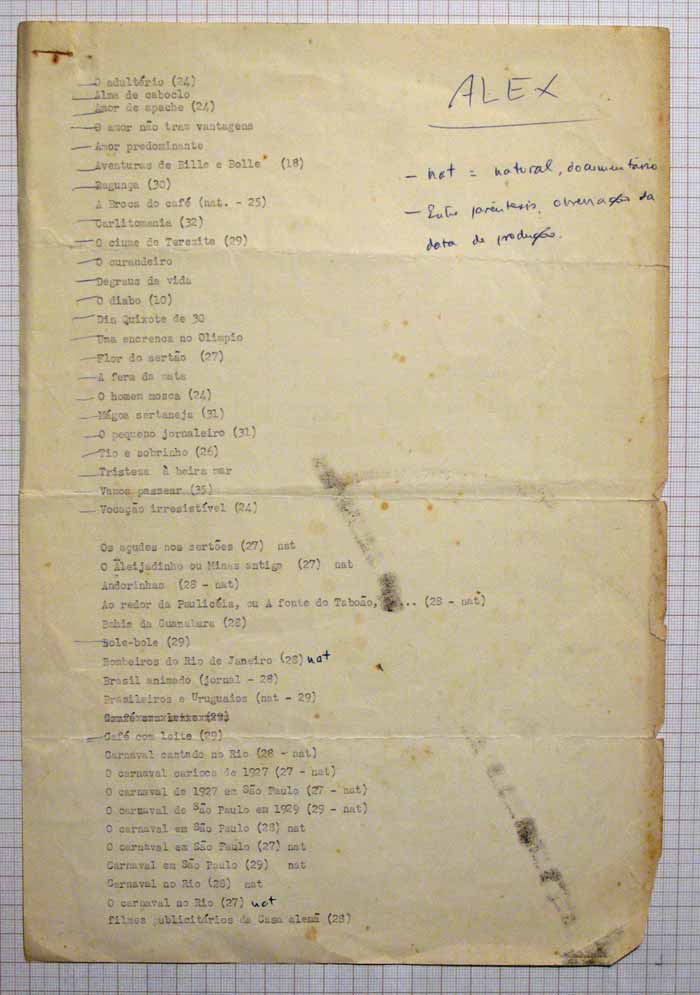 ALEX
- nat = natural, documentário
- Entre parêntesis, observação da
data de produção.
O adultério (24)
Alma de caboclo
Amor de apache (24)
O amor não traz vantagens
Amor predominante
Aventuras de Bille e Bolle (18)
Bagunça (30)
A Broca do café (nat. - 25)
Carlitomania (32)
O ciume de Terezita (29)
O curandeiro
Degraus da vida
O diabo (10)
Din Quixote de 30
Uma encrenca no Olimpio
Flor do sertão (27)
A fera da mata
O homem mosca (24)
Mágoa sertaneja (31)
O pequeno jornaleiro (31)
Tio e sobrinho (26)
Tristeza à beira mar
Vamos passear (35)
Vocação irresistível (24)
Os açudes nos sertões (27) nat
O Aleijadinho ou Minas antiga (27) nat
Andorinhas (28 - nat)
Ao redor da Paulicéia, ou A fonte do Taboão, ... (28 - nat)
Bahia da Guanabara (28)
Bole-bole (29)
Bombeiros do Rio de Janeiro (28) nat
Brasil animado (jornal - 28)
Brasileiros e Uruguaios (nat - 29)
Café com leite (29)
Carnaval cantado no Rio (28 - nat)
O carnaval carioca de 1927 (27 - nat)
O carnaval de 1927 em São Paulo (27 - nat)
O carnaval de São Paulo em 1929 (29 - nat)
O carnaval em São Paulo (28) nat
O carnaval em São Paulo (27) nat
Carnaval em São Paulo (29) nat
Carnaval no Rio (28) nat
O carnaval no Rio (27) nat
filmes publicitários da Casa alemã (28)